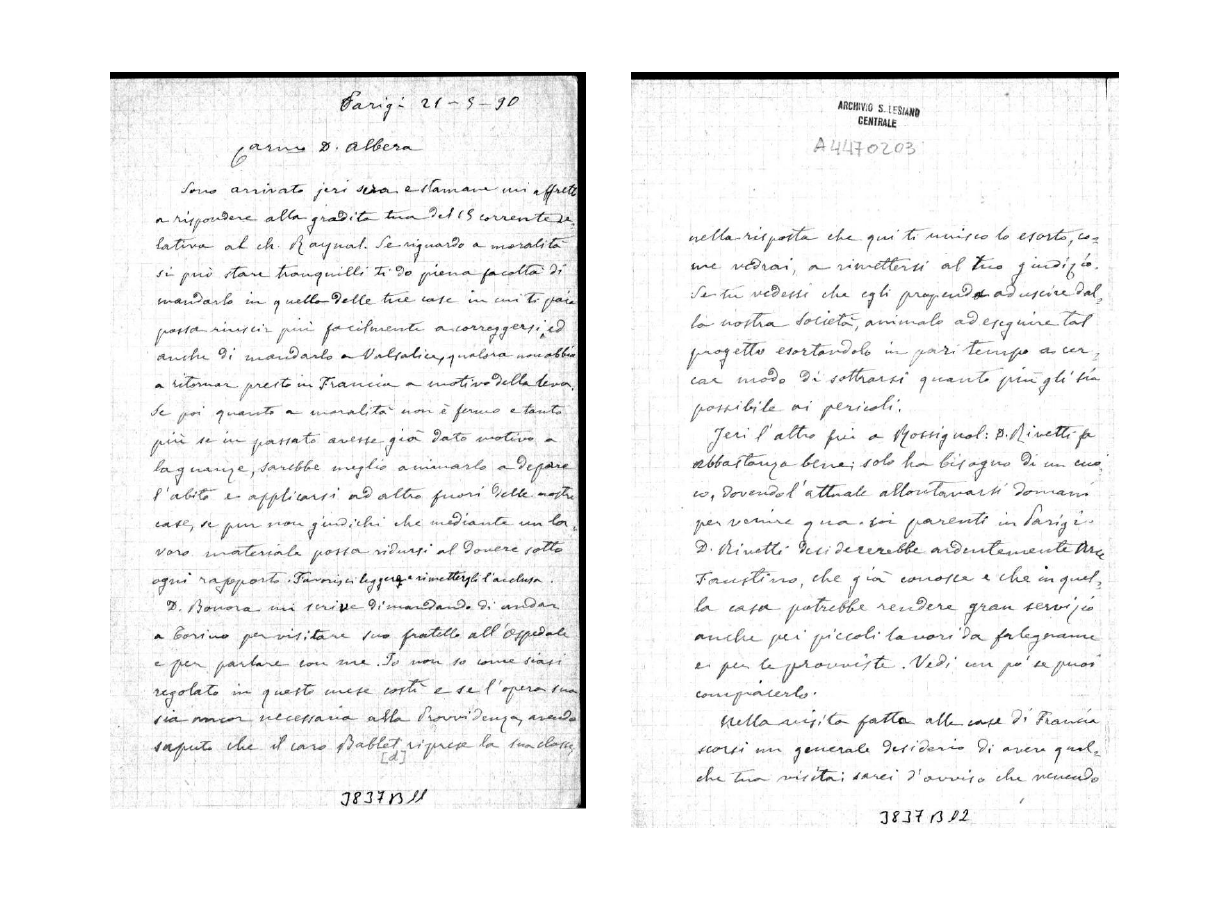 Parigi 21-5-90
Carmo D. Albera
Sono arrivato jeri sera e stamane mi affretto
a rispondere alla gradita tua del 15 corrente re-
lativa al ch. Raynal. Se riguardo a moralità
si può stare tranquilli ti do piena facoltà di
mandarlo in quella delle tue case in cui ti paia
possa riuscir più facilmente a correggersi, ed
anche di mandarlo a Valsalice, qualora non abbia
a ritornar presto in Francia a motivo della leva.
Se poi quanto a moralità non è fermo e tanto
più se in passato avesse già dato motivo a
lagnanze, sarebbe meglio animarlo a deporre
l'abito e applicarsi ad altro fuori delle nostre
case, se pur non giudichi che mediante un la-
voro materiale possa ridursi al dovere sotto
ogni rapporto. Favorisci leggere e rimettergli l'acclusa.
D. Bonora mi scrive dimandando di andar
a Torino per visitare suo fratello all'Ospedale
e per parlare con me. Io non so come siasi
regolato in questo mese costì e se l'opera sua
sia ancor necessaria alla Provvidenza, avendo
saputo che il caro Bablet riprese la sua classe,
[d]
3837 B 11
ARCHIVIO SALESIANO
CENTRALE
A4470203
nella risposta che qui ti unisco lo esorto, co-
me vedrai, a rimettersi al tuo giudizio.
Se tu vedessi che egli propende ad uscire dal-
la nostra Società, animalo ad eseguire tal
progetto esortandolo in pari tempo a cer-
car modo di sottrarsi quanto più gli sia
possibile ai pericoli.
Jeri l'altro fui a Rossignol: D. Rivetti fa
abbastanza bene; solo ha bisogno di un cuo-
co, dovendo l'attuale allontanarsi domani
per venire qua soi parenti in Parigi.
D. Rivetti desidererebbe ardentemente
Faustino, che già conosce e che in quel-
la casa potrebbe rendere gran servizio
anche pei piccoli lavori da falegname
e per le provviste. Vedi un pò se puoi
compiacerlo.
Nella visita fatta alle case di Francia
scorsi un generale desiderio di avere qual-
che tua visita; sarei d'avviso che venendo
3837 B 12